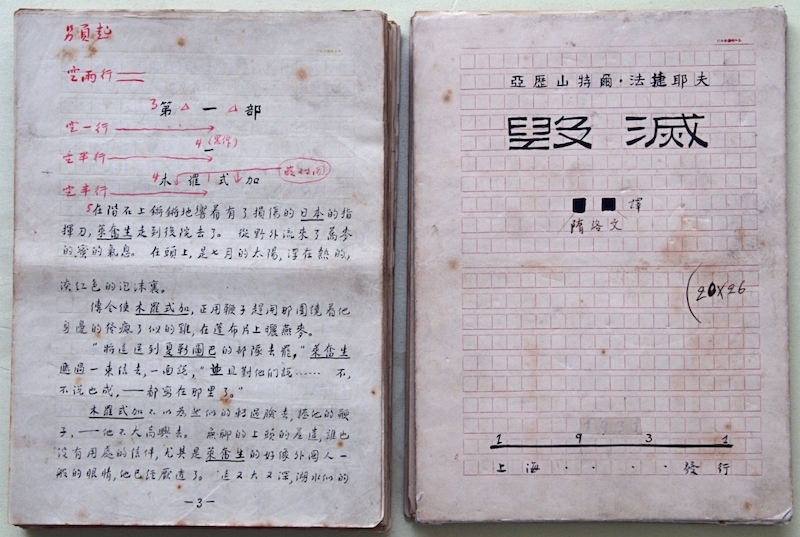 另頁起
空兩行
3 第一部
空一行
4 一
空半行
4 木羅式加
空半行
5 在階石上鏘鏘地響着有了損傷的日本的指
揮刀,萊奮生走到後院去了。 從野外流來了蕎麥
的蜜的氣息。 在頭上,是七月的太陽,浮在熱的,
淡紅色的泡沫裏。
傳令使木羅式加,正用鞭子趕開那圍繞着他
身邊的發瘋了似的雞,在篷布片上曬燕麥。
“將這送到夏勒圖巴的部隊去罷,”萊奮生
遞過一束信去,一面說,“並且對他們說…… 不,
不說也成,——都寫在那里了。”
木羅式加不以為然似的轉過臉去,捲他的鞭
子,——他不大高興去。 無聊的上頭的差遣,誰也
沒有用處的信件,尤其是萊奮生的好像外國人一
般的眼睛,他已經厭透了。 這又大又深,湖水似的
—3—
亞歷山特爾·法捷耶夫
毀滅
譯
隋洛文
(20×26
1931
1 9 3 1
上海····發行